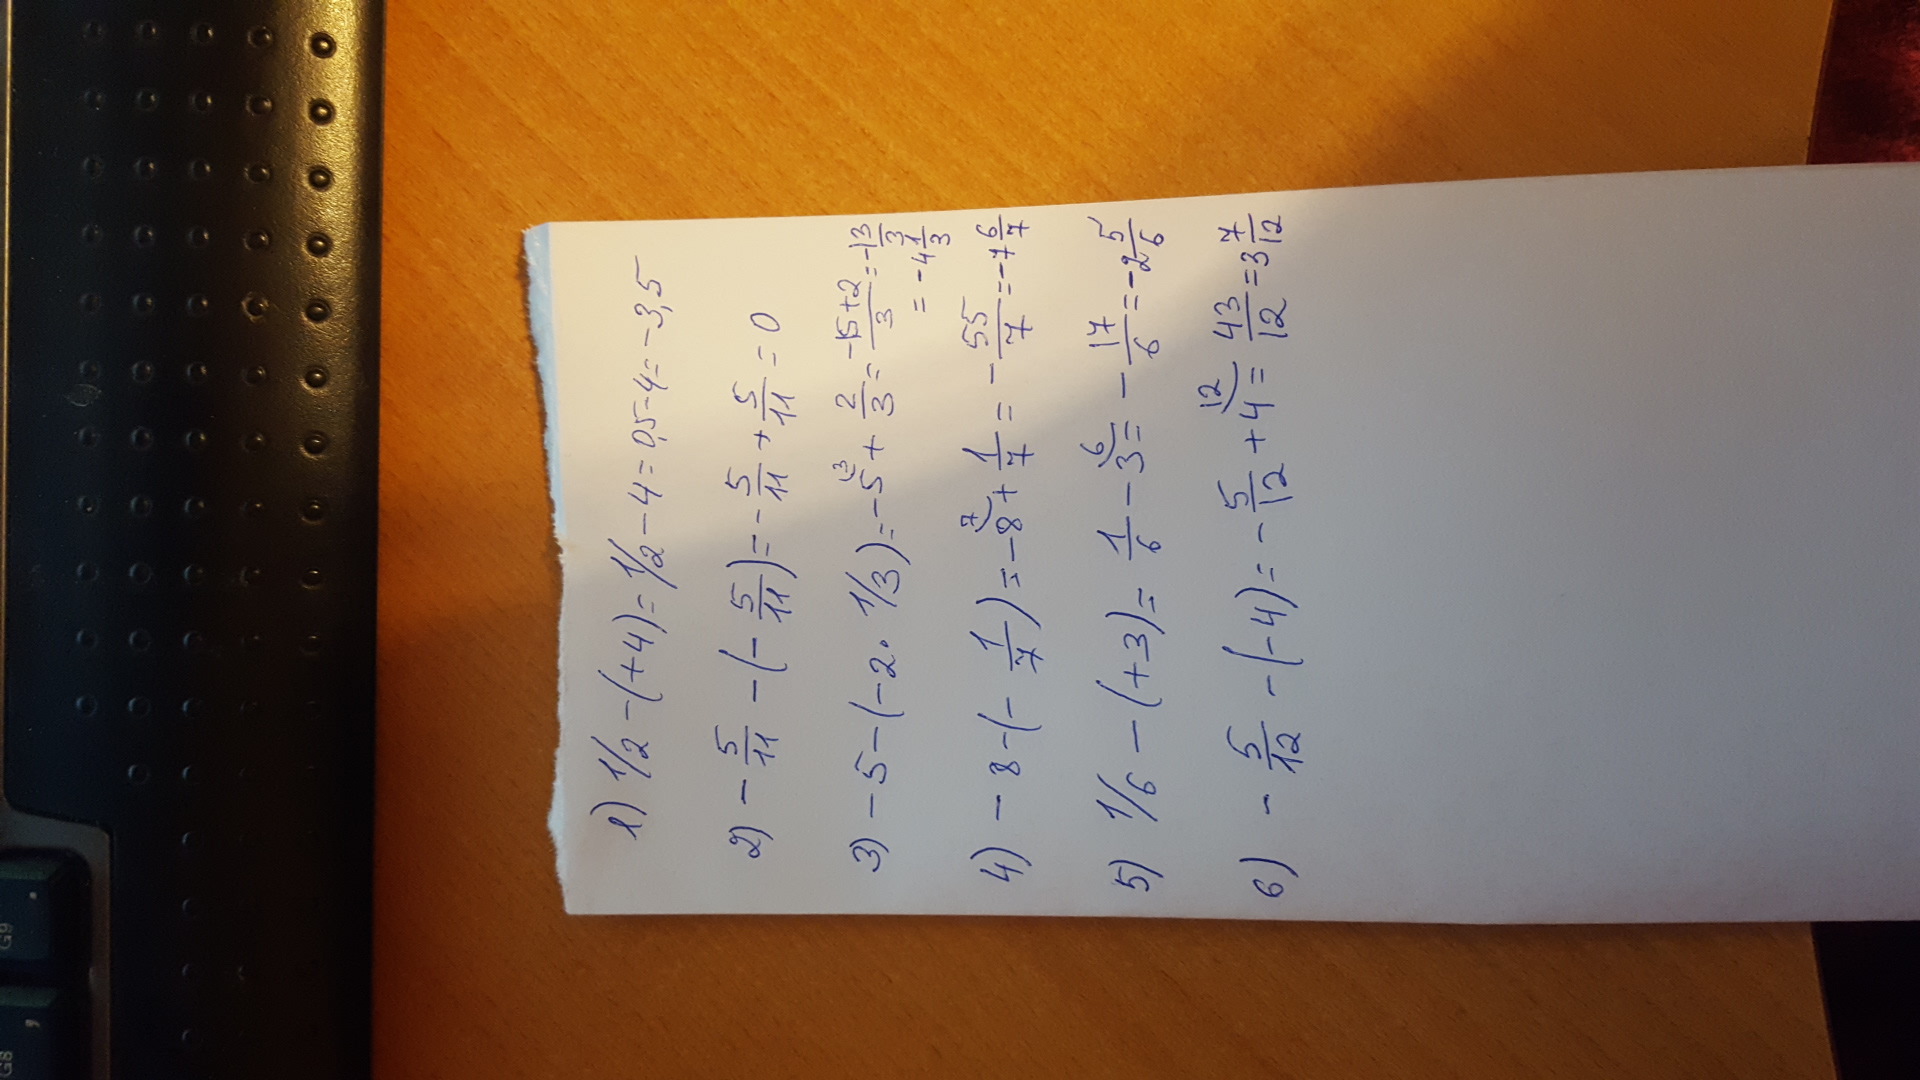 1) 1/2 - (+4) = 1/2 - 4 = 0,5 - 4 = -3,5
2) - 5/11 - (- 5/11) = - 5/11 + 5/11 = 0
3) - 5 - (-2 · 1/3) = - 5 3) + 2/3 = -15+2/3 = -13/3
= -4 1/3
4) - 8 - (- 1/7) = - 8 7) + 1/7 = - 55/7 = -7 6/7
5) 1/6 - (+3) = 1/6 - 3 6) = - 17/6 = -2 5/6
6) - 5/12 - (-4) = - 5/12 + 4 12) = 43/12 = 3 7/12
G9 .
G8 ,